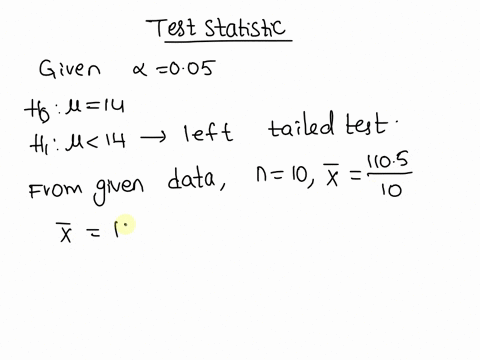 Test Statistic
Given α = 0.05
H₀ : μ = 14
H₁ : μ < 14 → left tailed test.
From given data, n = 10, x̄ = 110.5/10
x̄ = 1